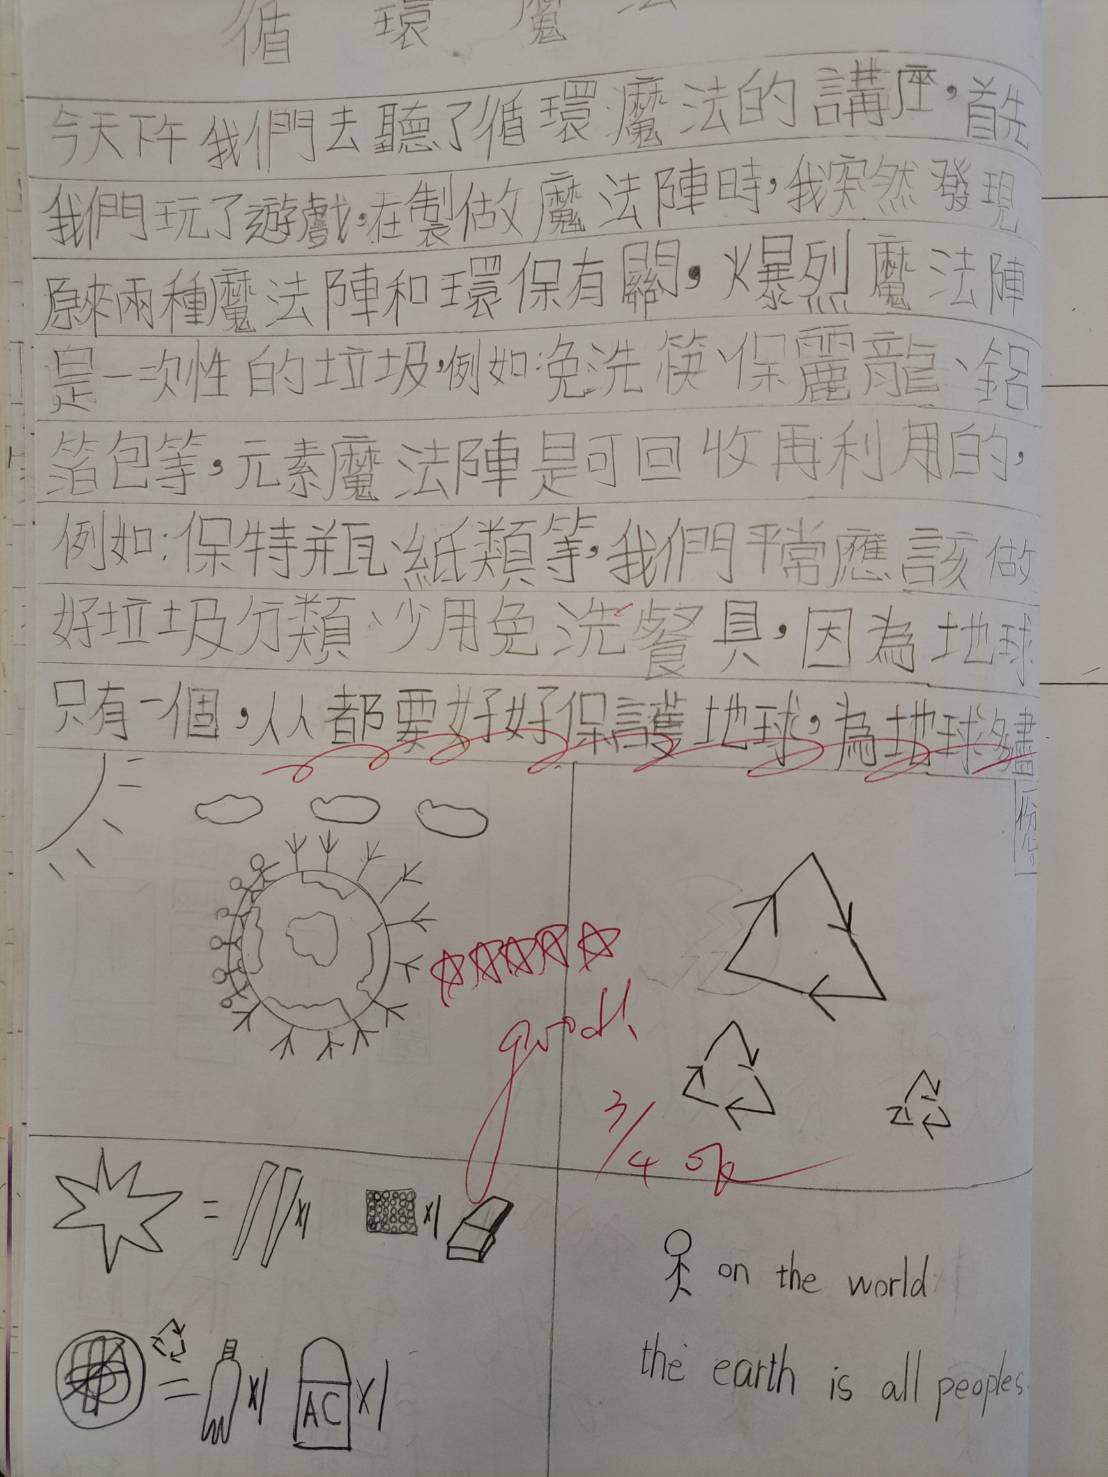 循 環 魔 法
今天下午我們去聽了循環魔法的講座，首先
我們玩了遊戲，在製做魔法陣時，我突然發現
原來兩種魔法陣和環保有關，爆烈魔法陣
是一次性的垃圾，例如：免洗筷、保麗龍、鋁
箔包等，元素魔法陣是可回收再利用的，
例如：保特瓶、紙類等，我們平常應該做
好垃圾分類、少用免洗餐具，因為地球
只有一個，人人都要好好保護地球，為地球盡
一份
good!
3/4 ok
= x1 x1
= x1 AC x1
on the world
the earth is all peoples